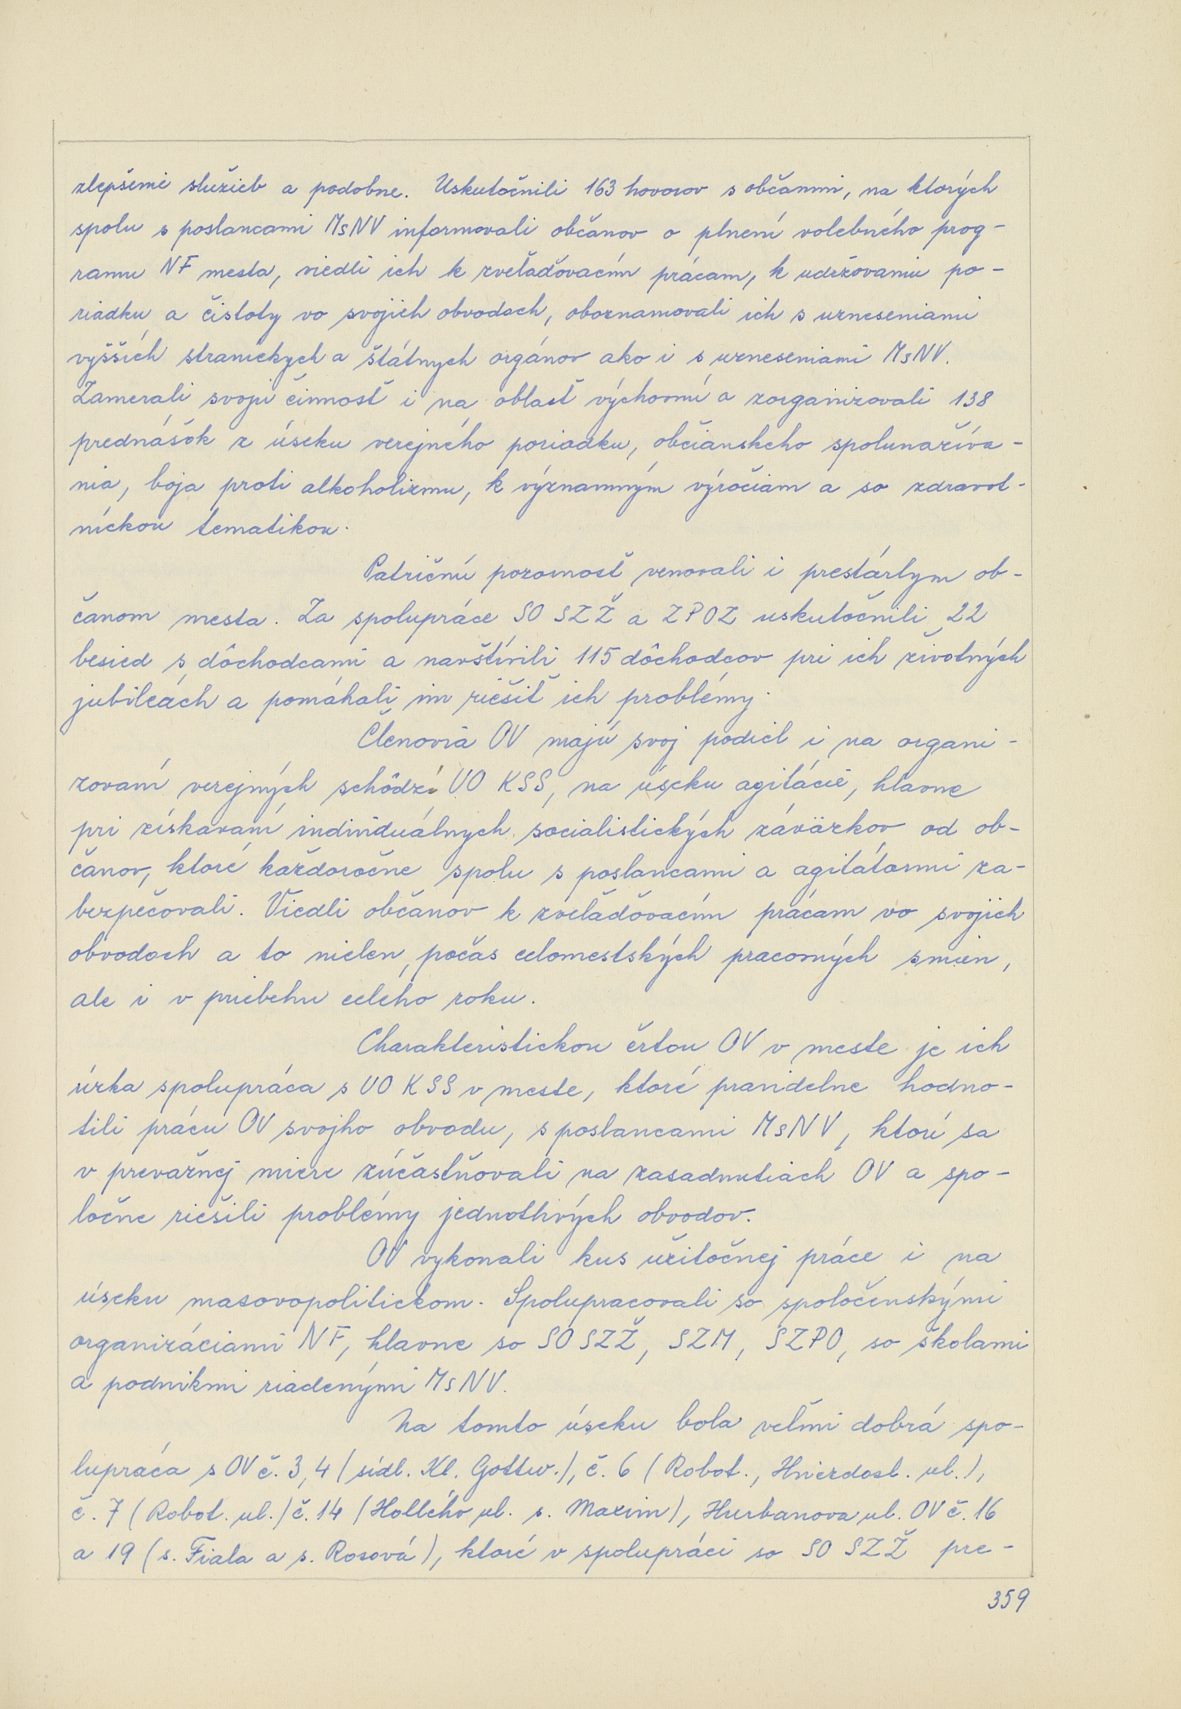 zlepšenie služieb a podobne. Uskutočnili 163 hovorov s občanmi, na ktorých
spolu s poslancami MsNV informovali občanov o plnení volebného prog-
ramu NF mesta, viedli ich k zveľaďovacím prácam, k udržovaniu po-
riadku a čistoty vo svojich obvodoch, oboznamovali ich s uzneseniami
vyšších straníckych a štátnych orgánov ako i s uzneseniami MsNV.
Zamerali svoju činnosť i na oblasť výchovnú a zorganizovali 138
prednášok z úseku verejného poriadku, občianskeho spolunažíva-
nia, boja proti alkoholizmu, k významným výročiam a so zdravot-
níckou tématikou.
Patričnú pozornosť venovali i prestárlym ob-
čanom mesta. Za spolupráce SO SZŽ a ZPOZ uskutočnili 22
besied s dôchodcami a navštívili 115 dôchodcov pri ich životných
jubileách a pomáhali im riešiť ich problémy.
Členovia OV majú svoj podiel i na organi-
zovaní verejných schôdzí VO KSS, na úseku agitácie, hlavne
pri získavaní individuálnych socialistických záväzkov od ob-
čanov, ktoré každoročne spolu s poslancami a agitátormi za-
bezpečovali. Viedli občanov k zveľaďovacím prácam vo svojich
obvodoch a to nielen počas celomestských pracovných smien,
ale i v priebehu celého roku.
Charakteristickou črtou OV v meste je ich
úzka spolupráca s VO KSS v meste, ktoré pravidelne hodno-
tili prácu OV svojho obvodu, s poslancami MsNV, ktorí sa
v prevažnej miere zúčastňovali na zasadnutiach OV a spo-
ločne riešili problémy jednotlivých obvodov.
OV vykonali kus užitočnej práce i na
úseku masovopolitickom. Spolupracovali so spoločenskými
organizáciami NF, hlavne so SO SZŽ, SZM, SZPO, so školami
a podnikmi riadenými MsNV.
Na tomto úseku bola veľmi dobrá spo-
lupráca s OV č. 3,4 (sídl. Kl. Gottw.), č. 6 (Robot., Hviezdosl. ul.),
č. 7 (Robot. ul.) č. 14 (Hollého ul. s. Maxim), Hurbanova ul. OV č. 16
a 19 (s. Fiala a s. Rosová), ktoré v spolupráci so SO SZŽ pre-
359